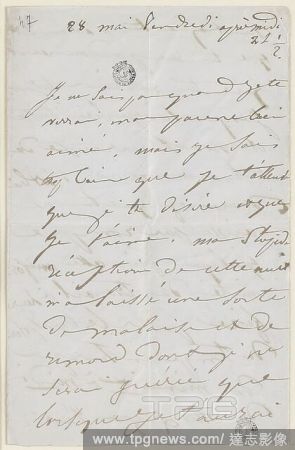 47
28 mai Vendredi après midi
2 h 1/2
Je ne sais pas quand je te
verrai, mon pauvre bien
aimé, mais je sais
trop bien que je t'attends
que je te désire et que
je t'aime. ma stupide
réception de cette nuit
m'a laissé une sorte
de malaise et de
remord dont je ne
serai guérie que
lorsque je t'aurai
TPG
www.tpgnews.com / 達志影像